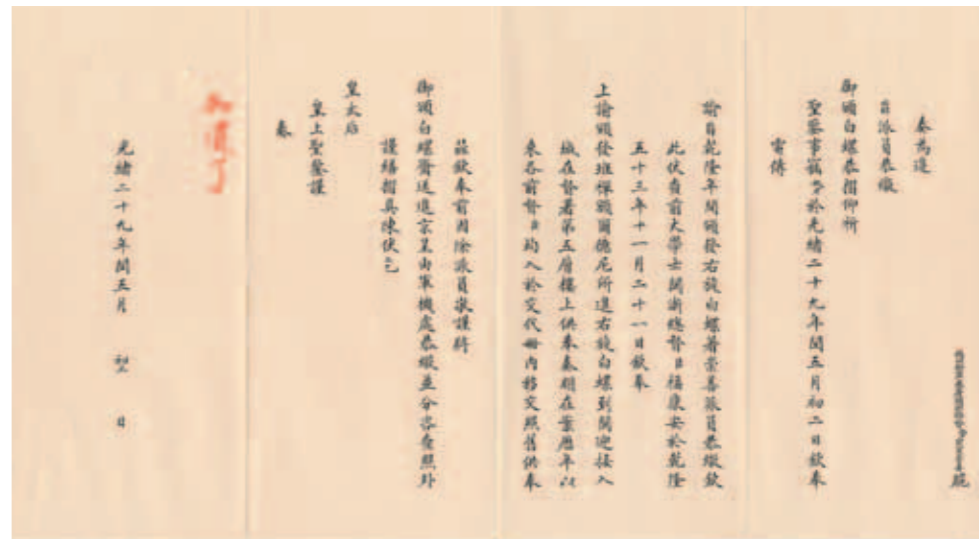 跪
奏為遵
旨派員恭繳
御頒白螺恭摺仰祈
聖鑒事竊奴才於光緒二十九年閏五月初二日欽奉
電傳
諭旨乾隆年間頒發右旋白螺著崇善派員恭繳欽
此伏查前大學士閩浙總督臣福康安於乾隆
五十三年十一月二十一日欽奉
上諭頒發班禪額爾德尼所進右旋白螺到閩迎接入
城在督署第五層樓上供奉奏明在案歷年以
來各前督臣均入於交代冊內移交照舊供奉
茲欽奉前因除派員敬謹將
御頒白螺齎送進京呈由軍機處恭繳並分咨查照外
謹繕摺具陳伏乞
皇太后
皇上聖鑒謹
奏
知道了
光緒二十九年閏五月 日